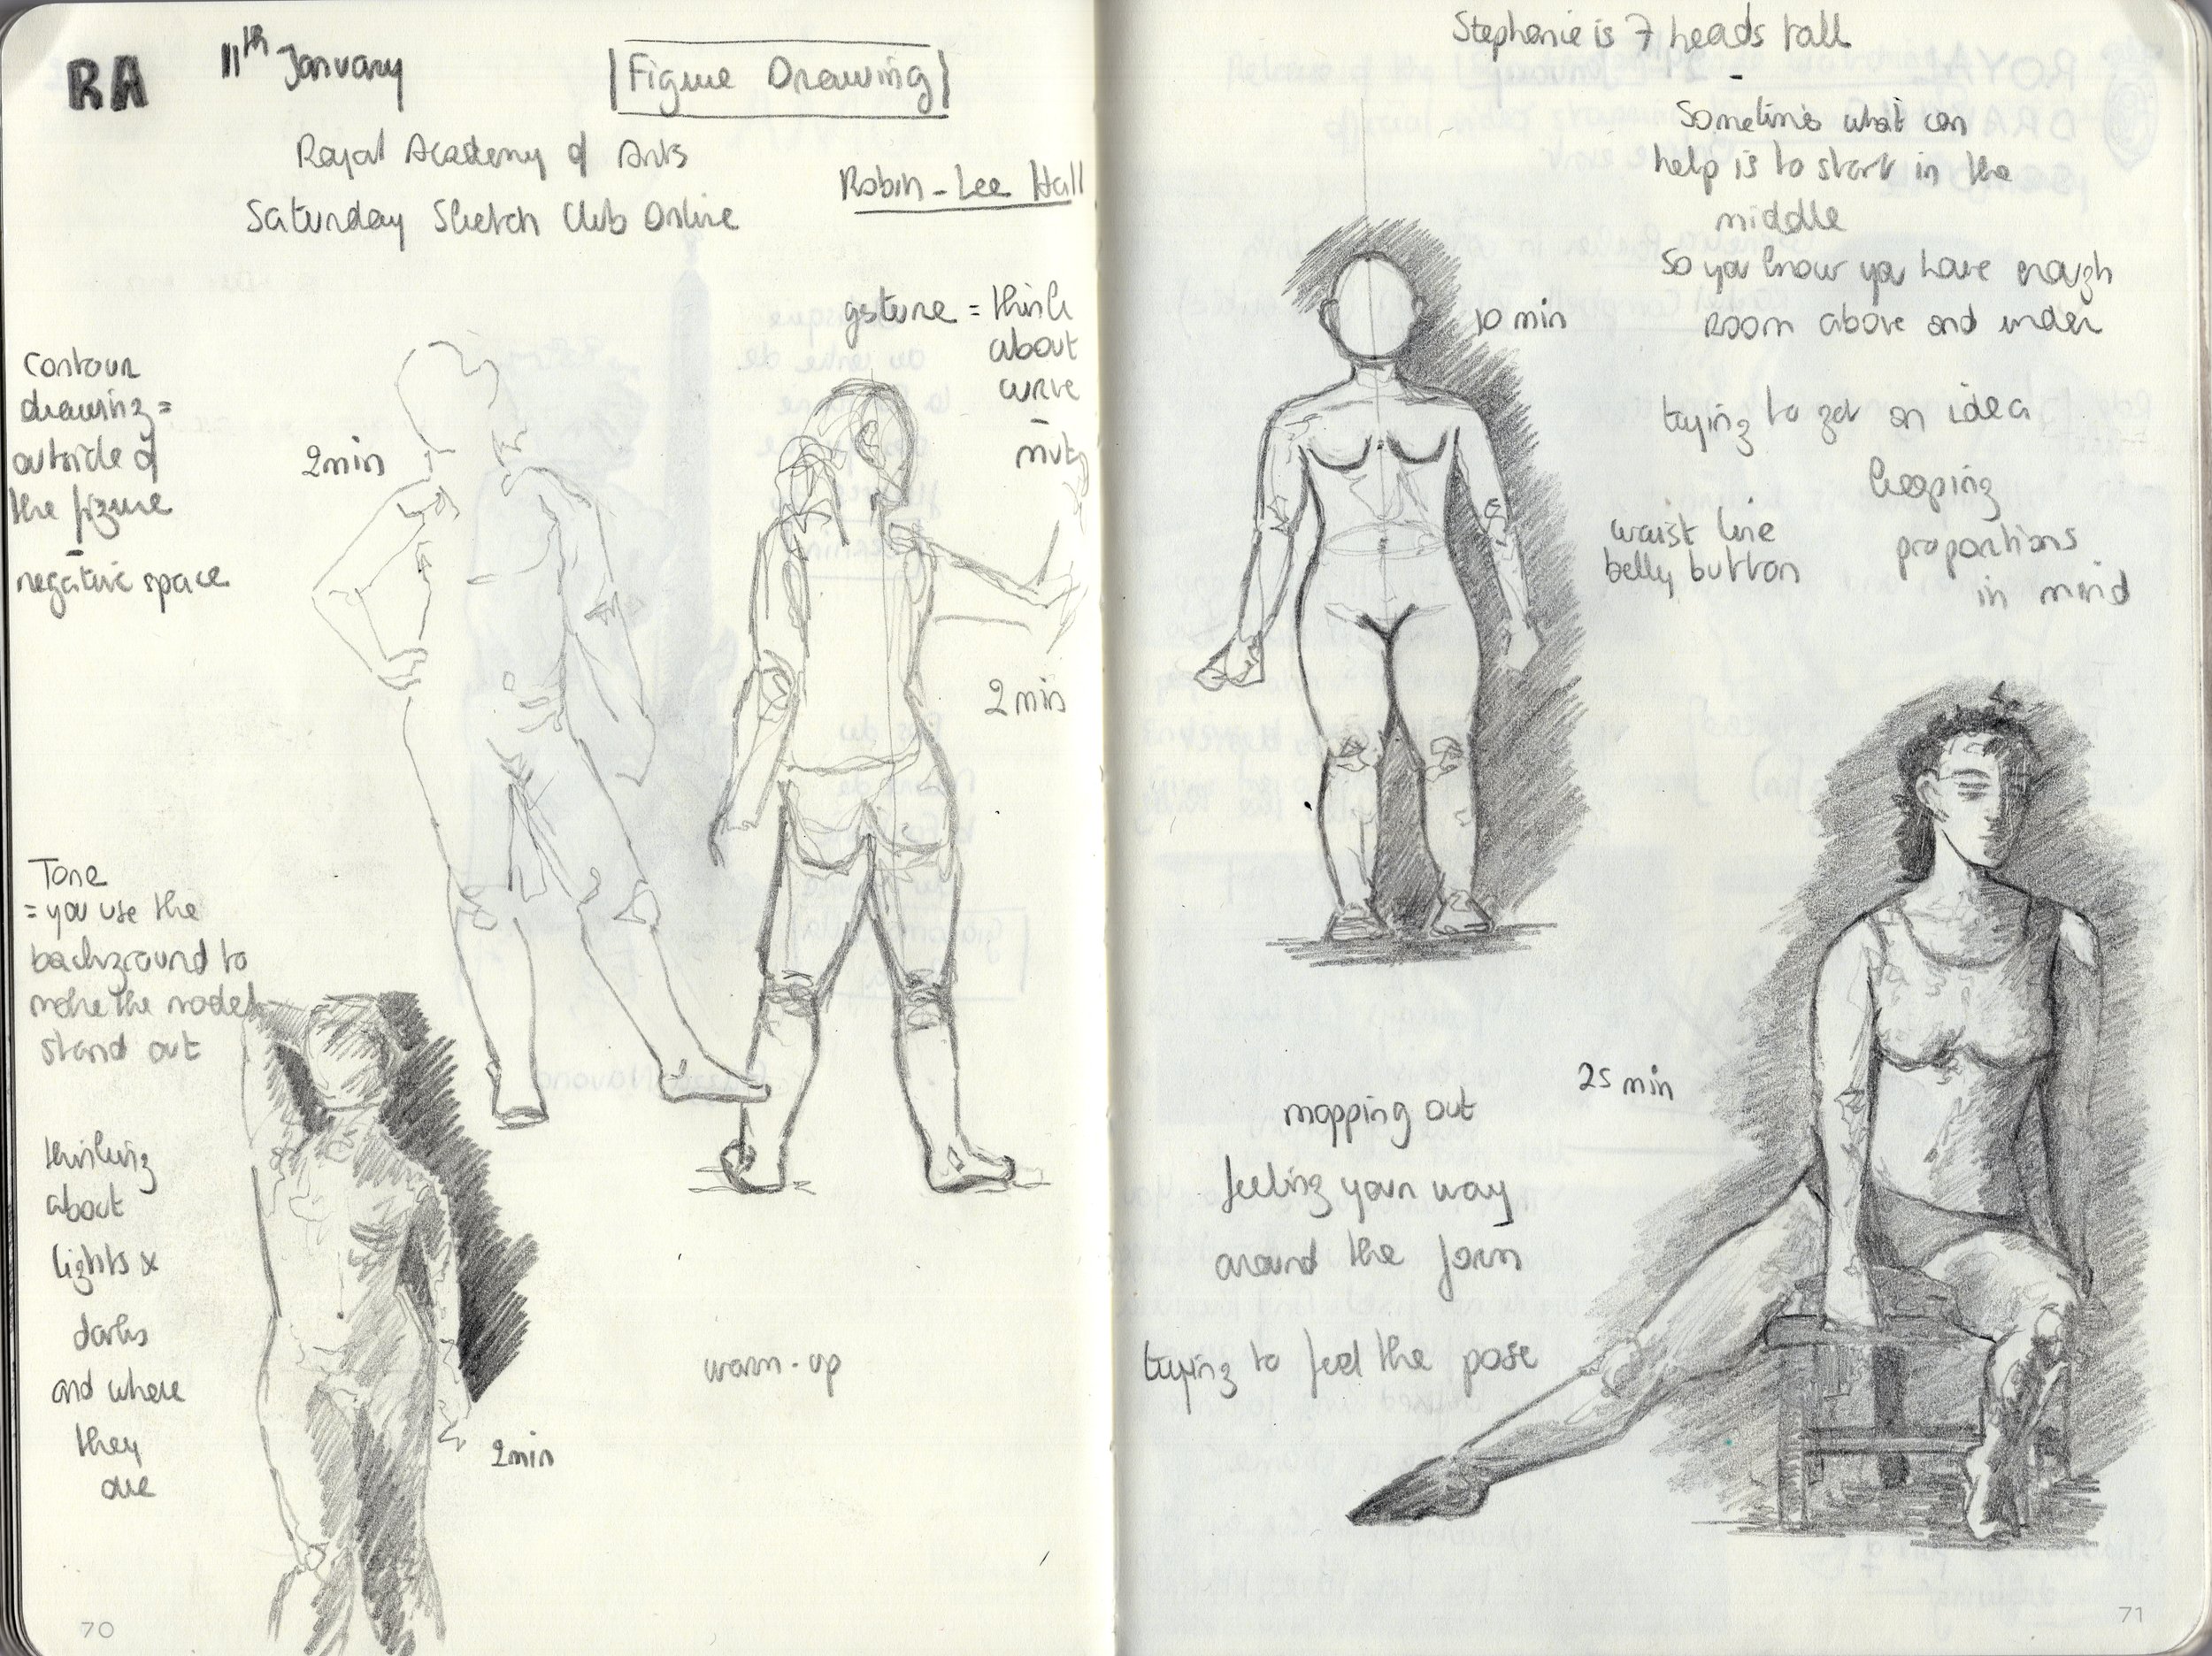 RA
11th January
Figure Drawing
Royal Academy of Arts
Saturday Sketch Club Online
Robin-Lee Hall
gesture = think
about
curve
-
contour
drawing =
outside of
the figure
-
negative space
2min
2 min
Tone
= you use the
background to
make the model
stand out
thinking
about
lights x
darks
and where
they
are
2min
warm-up
70
Stephanie is 7 heads tall
-
Sometimes what can
help is to start in the
middle
So you know you have enough
room above and under
10 min
trying to get an idea
keeping
proportions
in mind
waist line
belly button
25 min
mapping out
feeling your way
around the form
trying to feel the pose
71